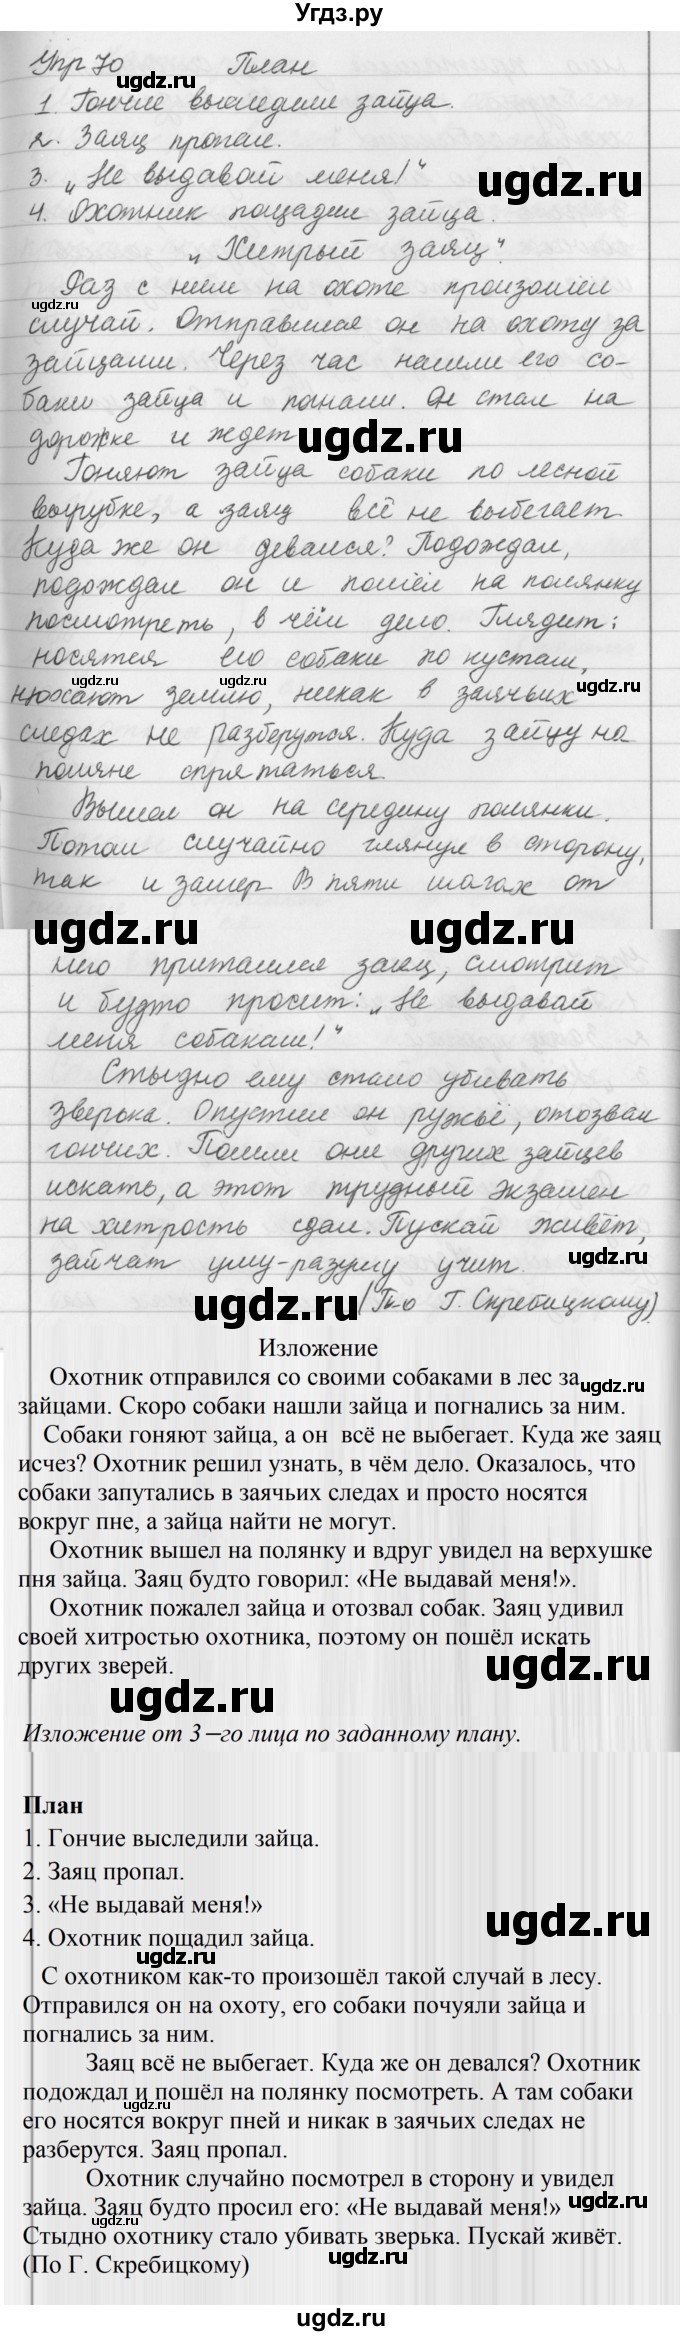 Угдз.ру
Упр 70 План
1. Гончие выследили зайца.
2. Заяц пропал.
3. „Не выдавай меня!"
4. Охотник пощадил зайца.
„Хитрый заяц".
Раз с ним на охоте произошёл
случай. Отправился он на охоту за
зайцами. Через час нашли его со-
баки зайца и погнали. Он стал на
дорожке и ждет
Гоняют зайца собаки по лесной
вырубке, а заяц всё не выбегает.
Куда же он девался? Подождал,
подождал он и пошёл на полянку
посмотреть, в чём дело. Глядит:
носятся его собаки по кустам,
нюхают землю, никак в заячьих
следах не разберутся. Куда зайцу на
поляне спрятаться.
Вышел он на середину полянки.
Потом случайно глянул в сторону,
так и замер. В пяти шагах от
него притаился заяц, смотрит
и будто просит: „Не выдавай
меня собакам!"
Стыдно ему стало убивать
зверька. Опустил он ружьё, отозвал
гончих. Пошли они других зайцев
искать, а этот трудный экзамен
на хитрость сдал. Пускай живёт,
зайчат уму-разуму учит.
(По Г. Скребицкому)
Изложение
Охотник отправился со своими собаками в лес за
зайцами. Скоро собаки нашли зайца и погнались за ним.
Собаки гоняют зайца, а он всё не выбегает. Куда же заяц
исчез? Охотник решил узнать, в чём дело. Оказалось, что
собаки запутались в заячьих следах и просто носятся
вокруг пне, а зайца найти не могут.
Охотник вышел на полянку и вдруг увидел на верхушке
пня зайца. Заяц будто говорил: «Не выдавай меня!».
Охотник пожалел зайца и отозвал собак. Заяц удивил
своей хитростью охотника, поэтому он пошёл искать
других зверей.
Изложение от 3–го лица по заданному плану.
План
1. Гончие выследили зайца.
2. Заяц пропал.
3. «Не выдавай меня!»
4. Охотник пощадил зайца.
С охотником как-то произошёл такой случай в лесу.
Отправился он на охоту, его собаки почуяли зайца и
погнались за ним.
Заяц всё не выбегает. Куда же он девался? Охотник
подождал и пошёл на полянку посмотреть. А там собаки
его носятся вокруг пней и никак в заячьих следах не
разберутся. Заяц пропал.
Охотник случайно посмотрел в сторону и увидел
зайца. Заяц будто просил его: «Не выдавай меня!»
Стыдно охотнику стало убивать зверька. Пускай живёт.
(По Г. Скребицкому)
ugdz.ru